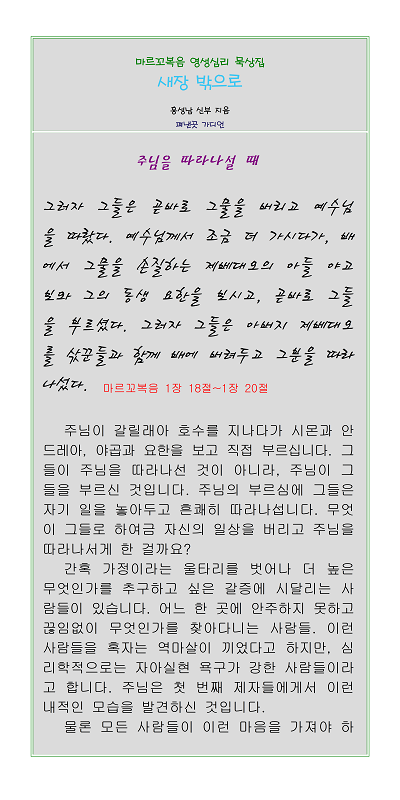 마르꼬복음 영성심리 묵상집
새장 밖으로
홍성남 신부 지음
펴낸곳 가디언
주님을 따라나설 때
그러자 그들은 곧바로 그물을 버리고 예수님
을 따랐다. 예수님께서 조금 더 가시다가, 배
에서 그물을 손질하는 제베대오의 아들 야고
보와 그의 동생 요한을 보시고, 곧바로 그들
을 부르셨다. 그러자 그들은 아버지 제베대오
를 삯꾼들과 함께 배에 버려두고 그분을 따라
나섰다. 마르꼬복음 1장 18절~1장 20절
주님이 갈릴래아 호수를 지나다가 시몬과 안
드레아, 야곱과 요한을 보고 직접 부르십니다. 그
들이 주님을 따라나선 것이 아니라, 주님이 그
들을 부르신 것입니다. 주님의 부르심에 그들은
자기 일을 놓아두고 흔쾌히 따라나섭니다. 무엇
이 그들로 하여금 자신의 일상을 버리고 주님을
따라나서게 한 걸까요?
간혹 가정이라는 울타리를 벗어나 더 높은
무엇인가를 추구하고 싶은 갈증에 시달리는 사
람들이 있습니다. 어느 한 곳에 안주하지 못하고
끊임없이 무엇인가를 찾아다니는 사람들. 이런
사람들을 혹자는 역마살이 끼었다고 하지만, 심
리학적으로는 자아실현 욕구가 강한 사람들이라
고 합니다. 주님은 첫 번째 제자들에게서 이런
내적인 모습을 발견하신 것입니다.
물론 모든 사람들이 이런 마음을 가져야 하